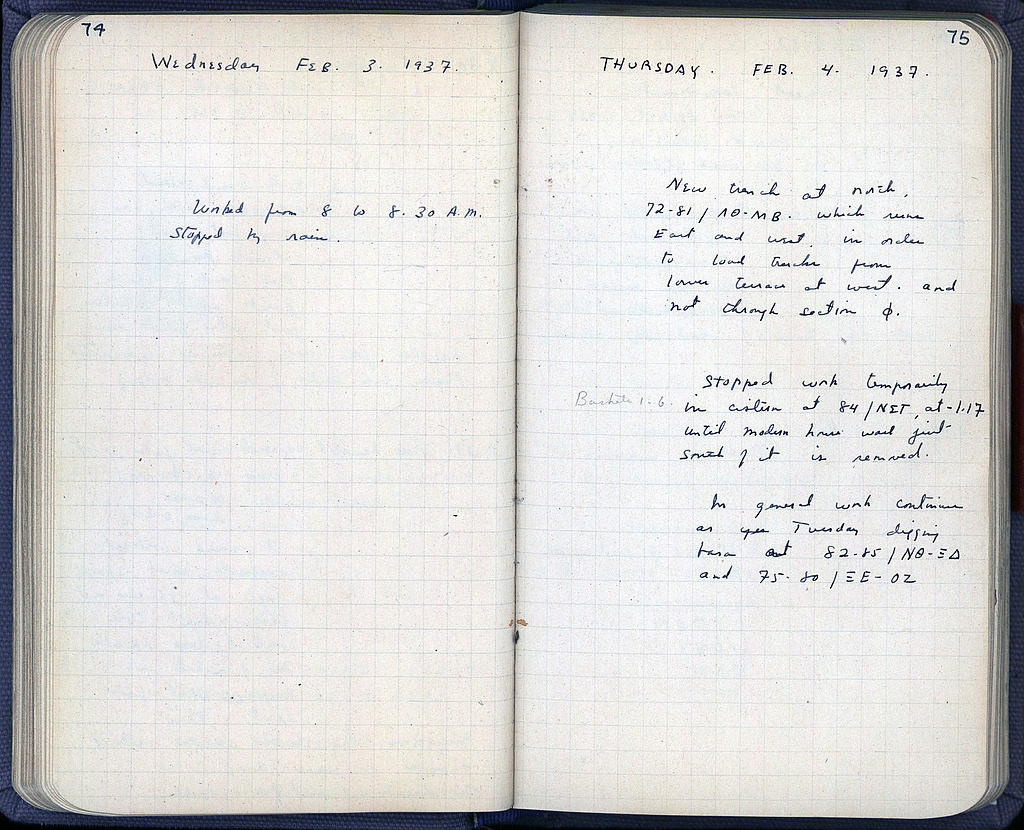 74
Wednesday FEB. 3. 1937.
Worked from 8 to 8.30 A.M.
Stopped by rain.
75
THURSDAY. FEB. 4. 1937.
New trench at north,
72-81/ΛΘ-ΜΒ. which runs
East and west, in order
to load trucks from
lower terrace at west. and
not through section Φ.
Stopped work temporarily
Baskets 1-6.
in cistern at 84/ΝΣΤ, at -1.17
until modern house wall just
south of it is removed.
In general work continues
as per Tuesday digging
at 82-85/ΝΘ-ΞΔ
and 75-80/ΞΕ-ΟΖ